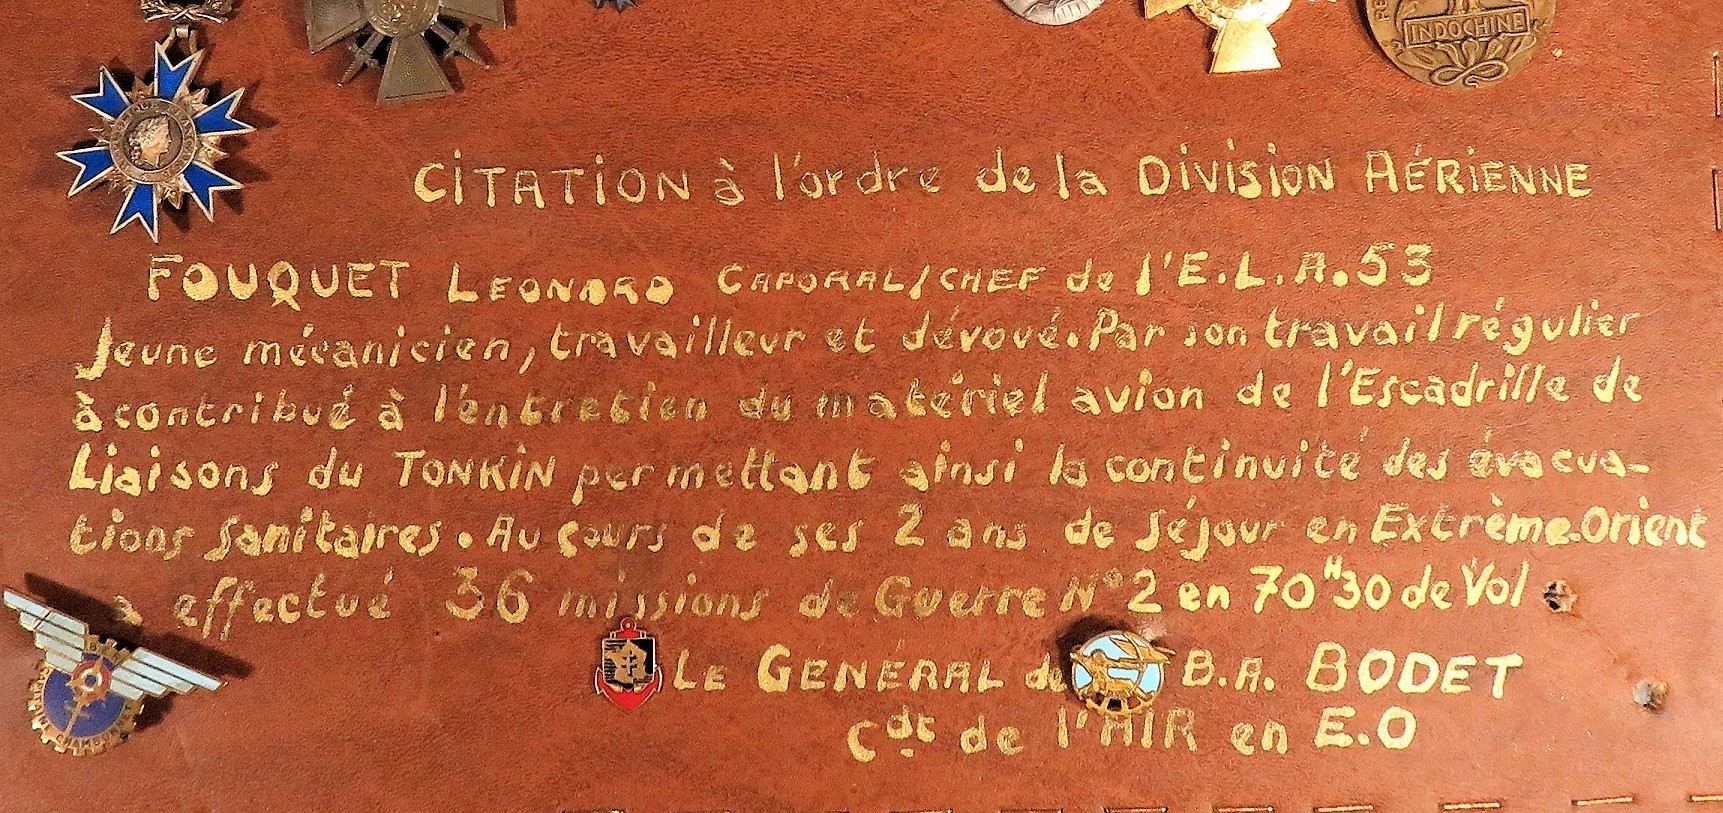 INDOCHINE
CiTATiON à l'ordre de la DiViSiON AÉRiENNE
FOUQUET LEONARD CAPORAL/CHEF de l'E.L.A.53
Jeune mécanicien, travailleur et dévoué. Par son travail régulier
à contribué à l'entretien du matériel avion de l'Escadrille de
Liaisons du TONKiN permettant ainsi la continuité des évacua-
tions sanitaires. Au cours de ses 2 ans de séjour en Extrême-Orient
a effectué 36 missions de Guerre N° 2 en 70H30 de Vol
LE GENERAL de B.A. BODET
Cdt de l'AIR en E.O